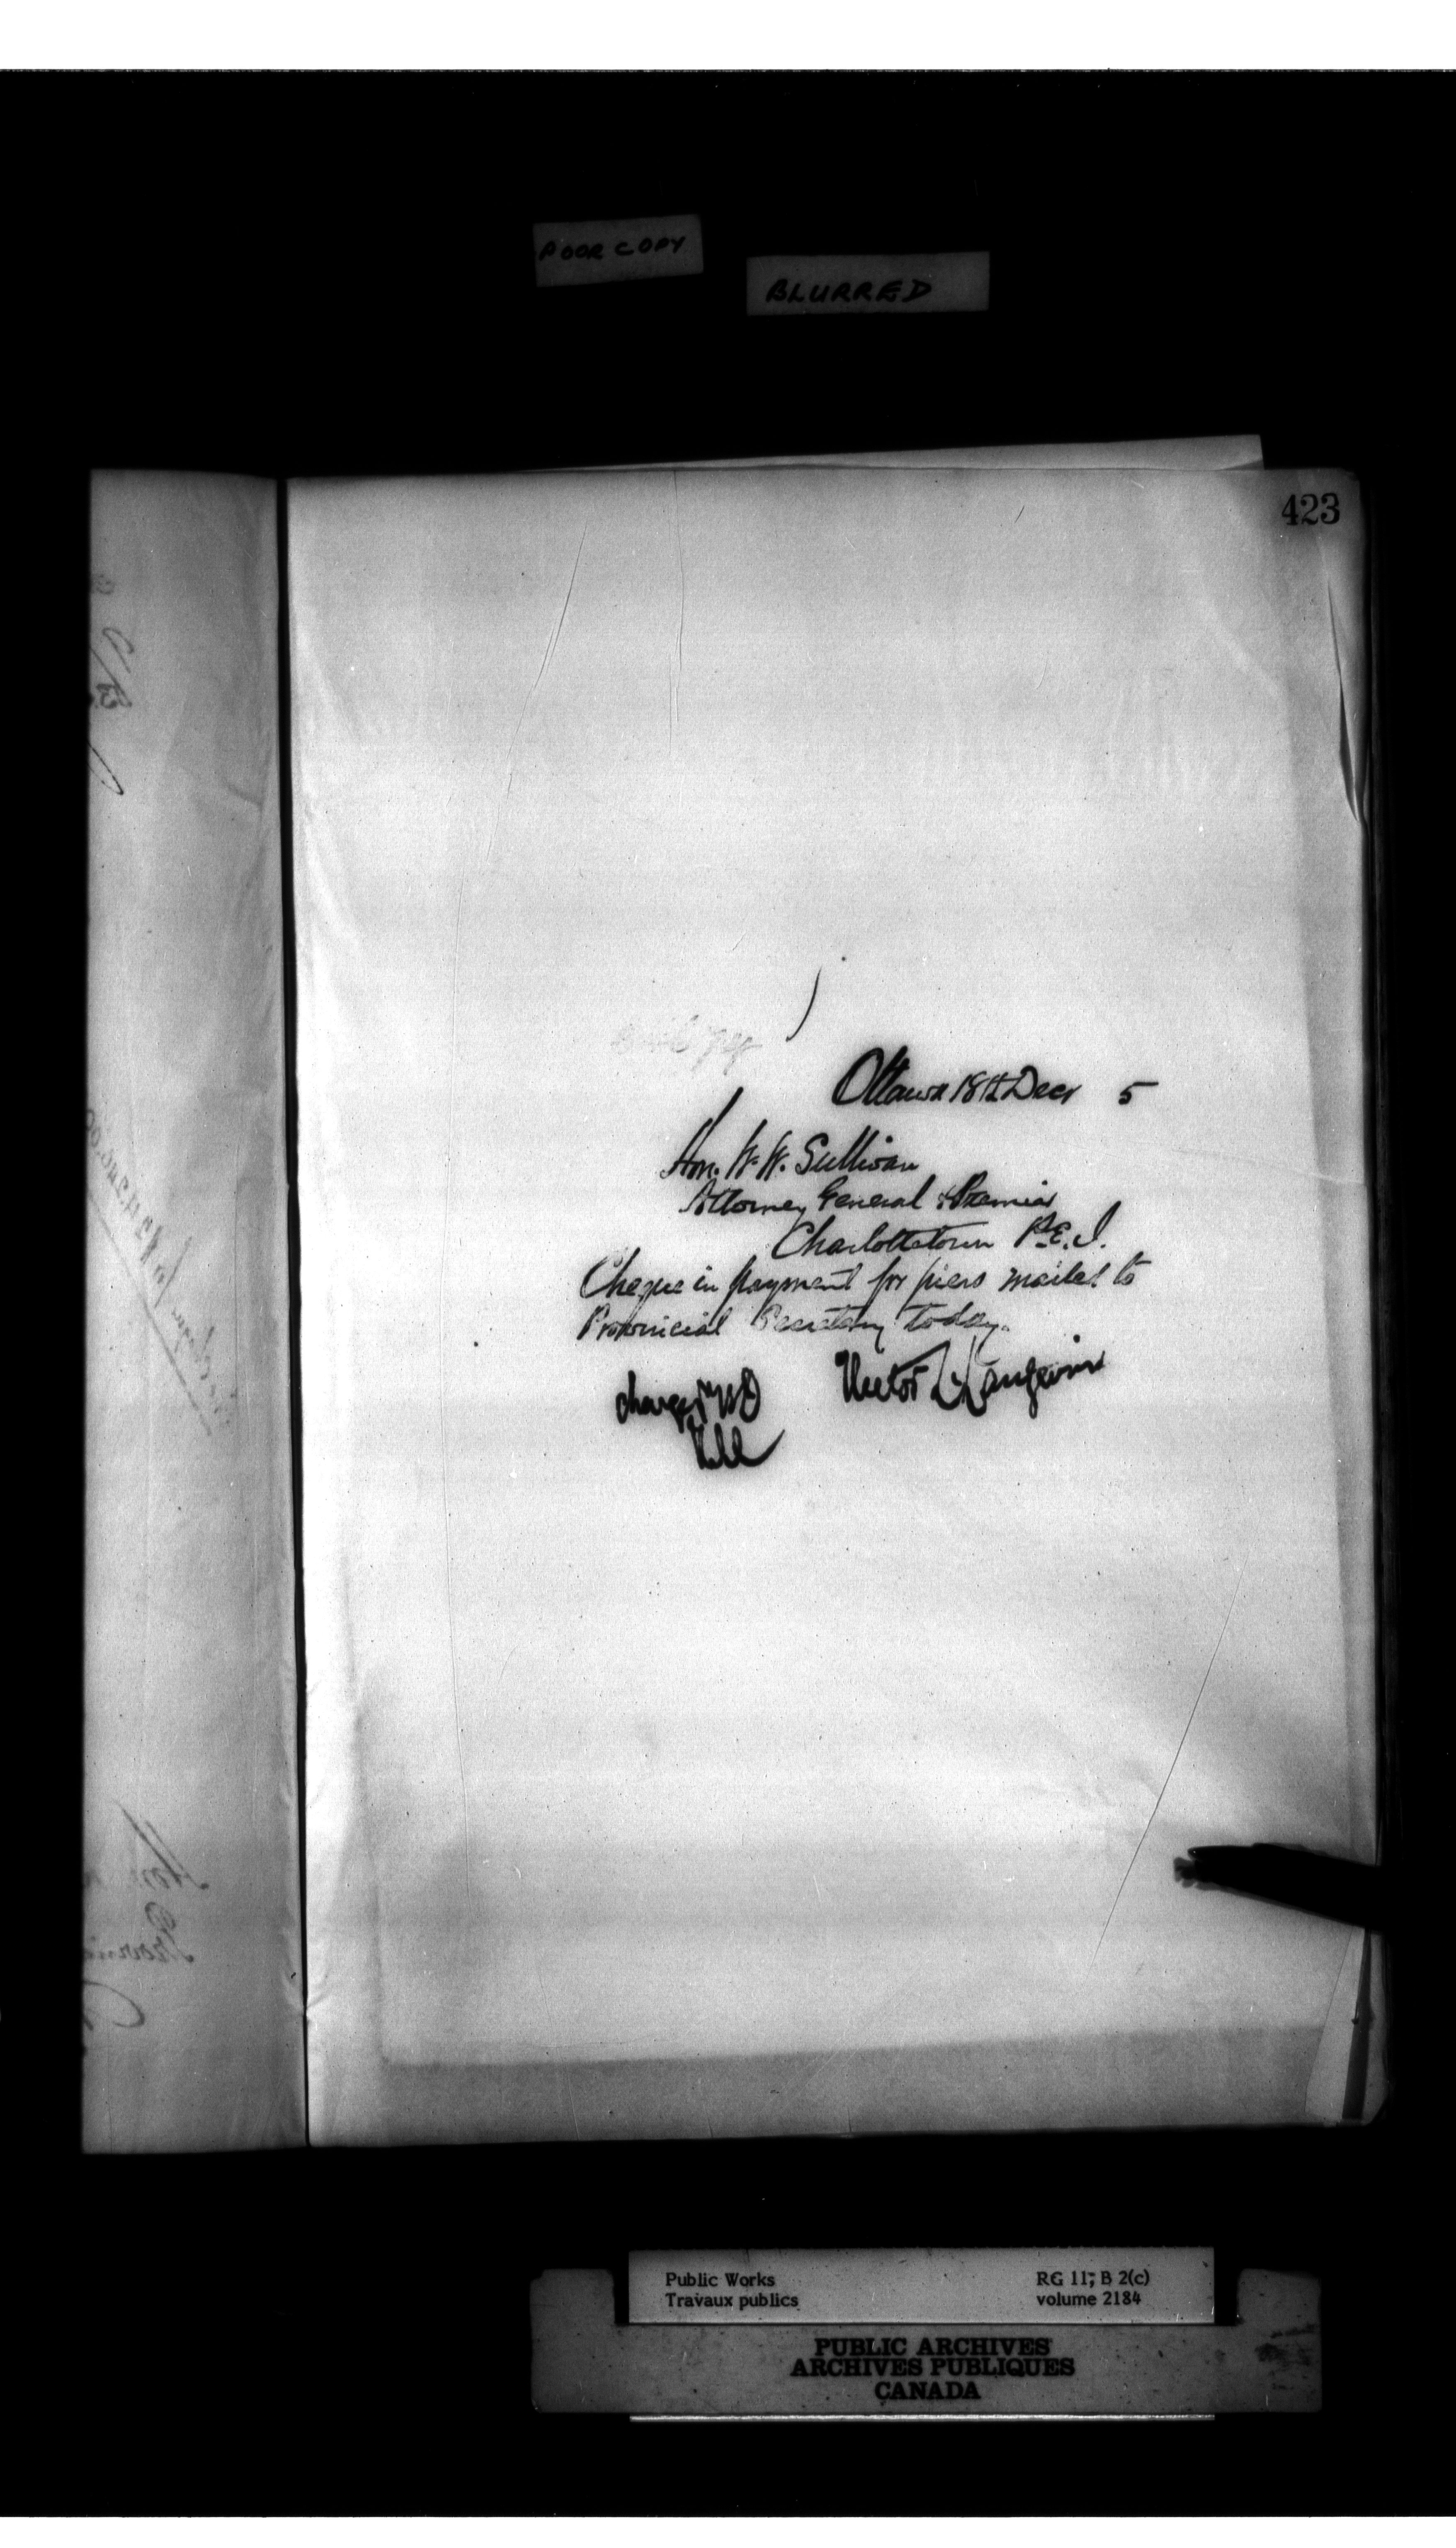 POOR COPY
BLURRED
423
Ottawa 18th Decr 5
Hon. W. W. Sullivan
Attorney General & Premier
Charlottetown P.E.I.
Cheque in payment for piers mailed to
Provincial Secretary today.
Hector L. Langevin
charge
Public Works
Travaux publics
RG 11, B 2(c)
volume 2184
PUBLIC ARCHIVES
ARCHIVES PUBLIQUES
CANADA